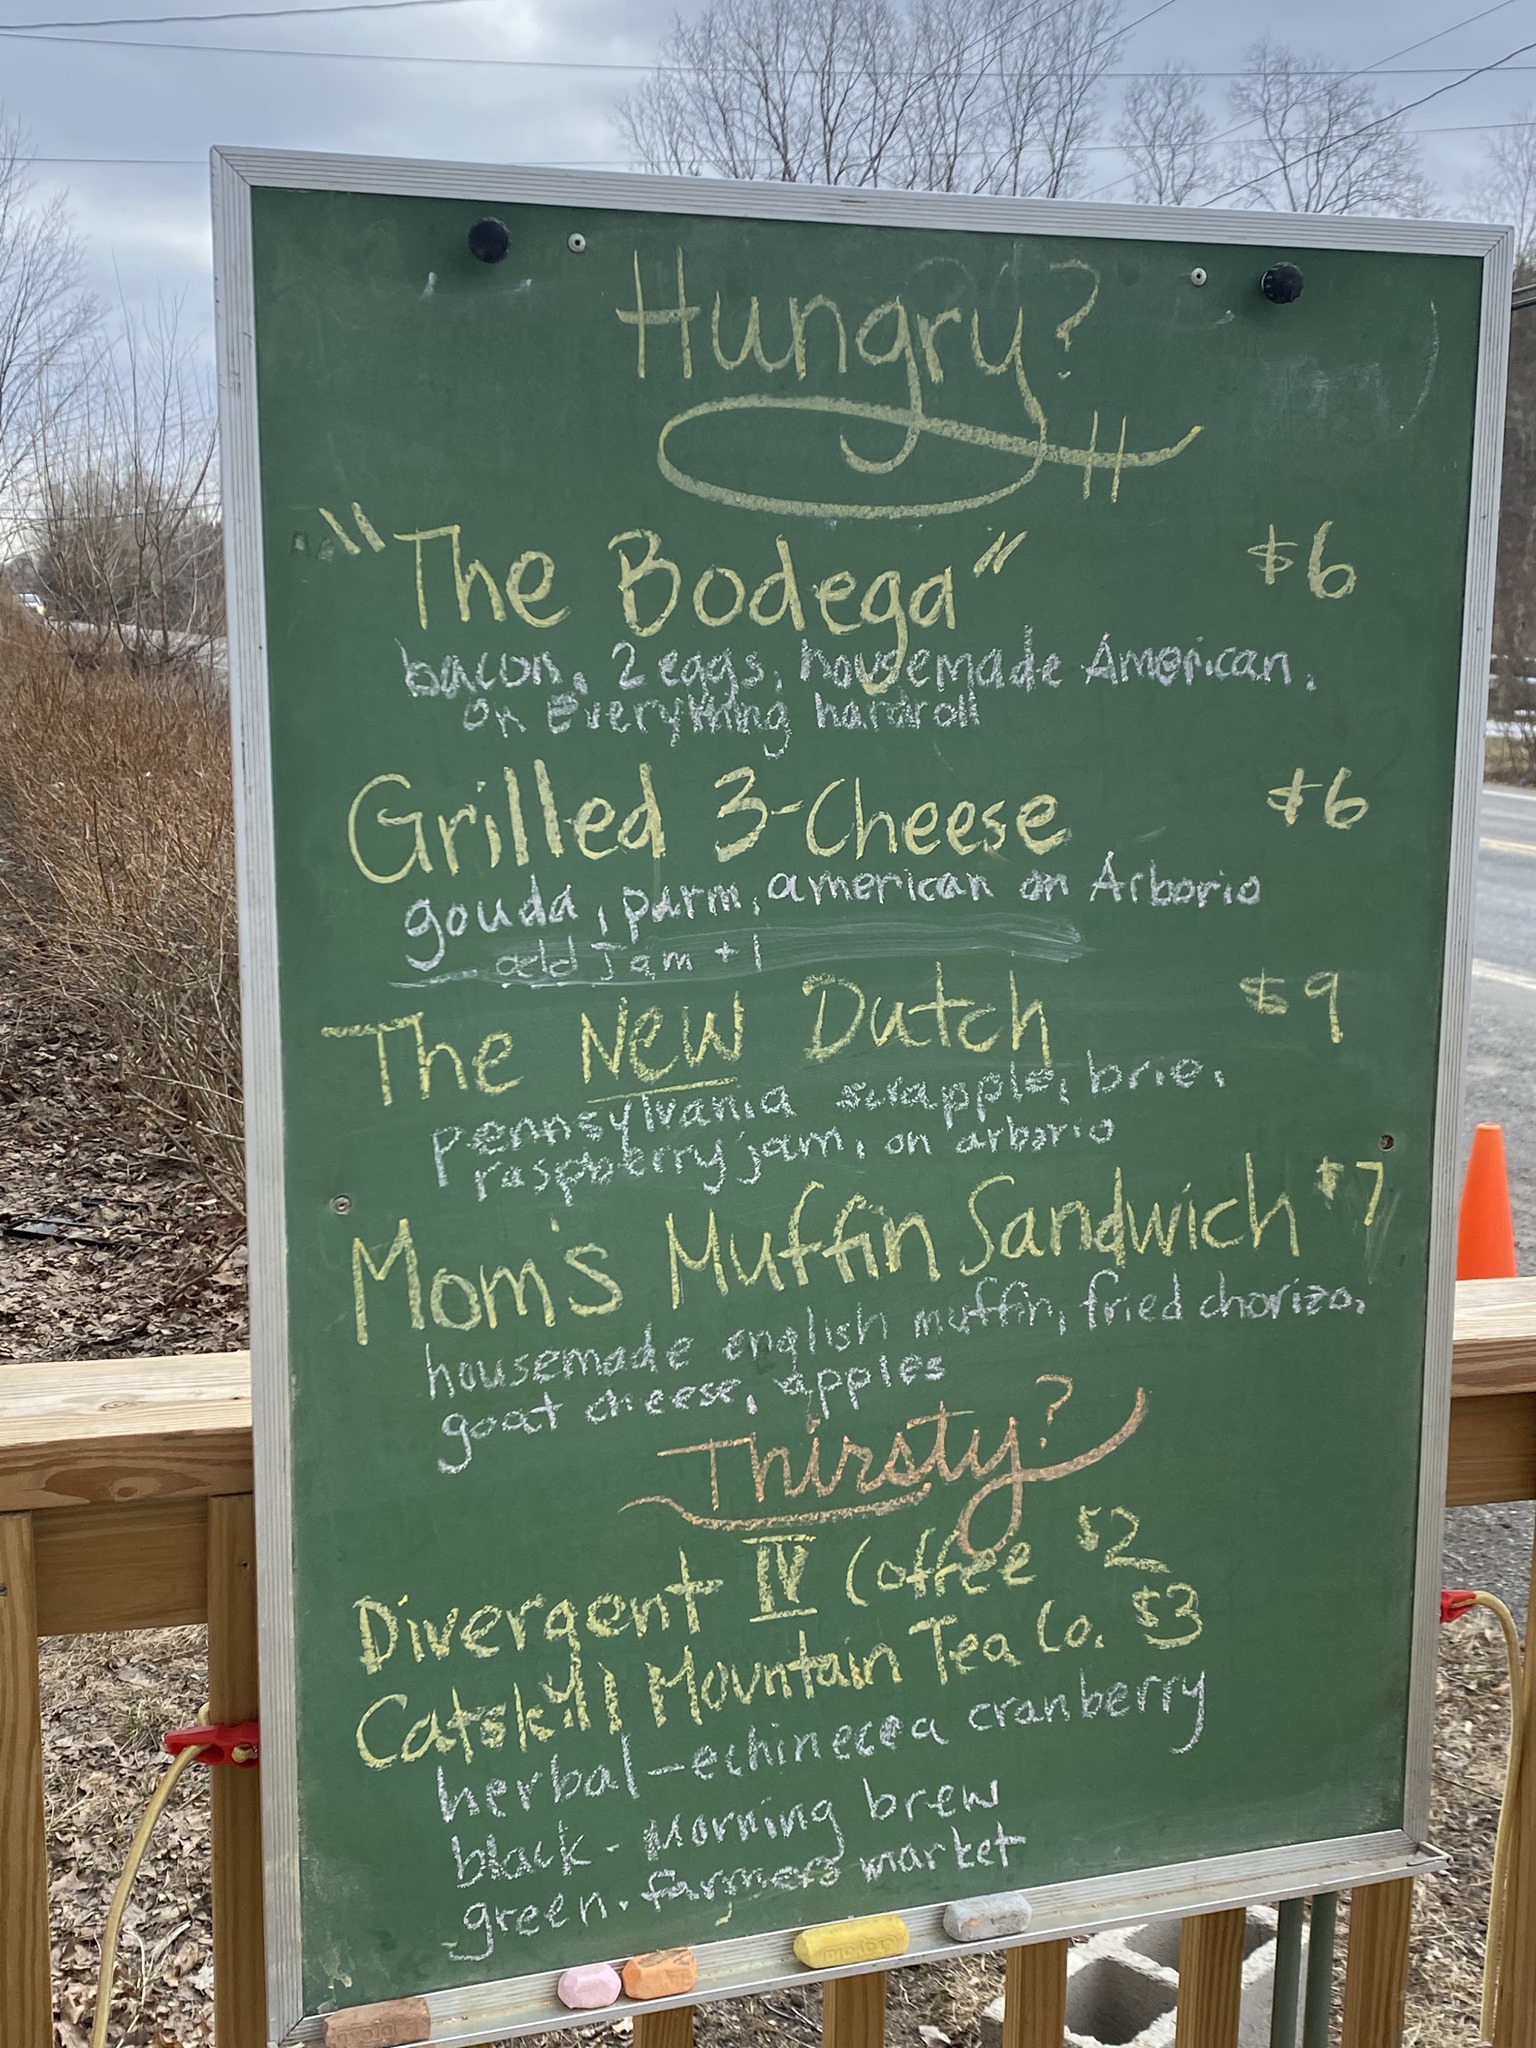 Hungry?
"The Bodega" $6
bacon, 2 eggs, housemade American,
on Everything hardroll
Grilled 3-Cheese $6
gouda, parm, american on Arborio
add Jam +1
The New Dutch $9
pennsylvania scrapple, brie,
raspberry jam, on arborio
Mom's Muffin Sandwich $7
housemade english muffin, fried chorizo,
goat cheese, apples
Thirsty?
Divergent IV Coffee $2
Catskill Mountain Tea Co. $3
herbal-echinecea cranberry
black - morning brew
green. farmers market